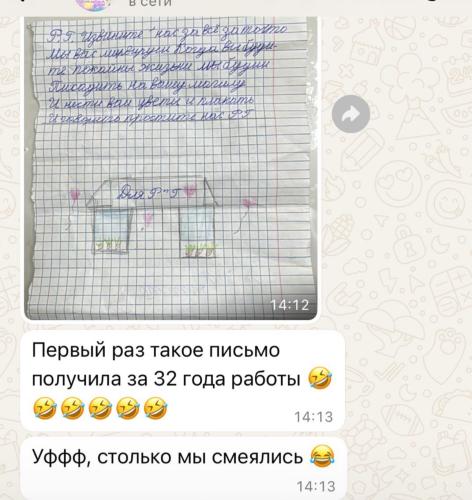 в сети
Р.Г. Извините нас за всё за то что
Мы вас Когда вы буди-
ти покойны жизьни мы будим
на вашу могилу
И нисти вам цвети и плакить
простите нас РГ
Для Р"Г
14:12
Первый раз такое письмо
получила за 32 года работы 🤣
🤣🤣🤣🤣🤣
14:13
Уффф, столько мы смеялись 😂
14:13